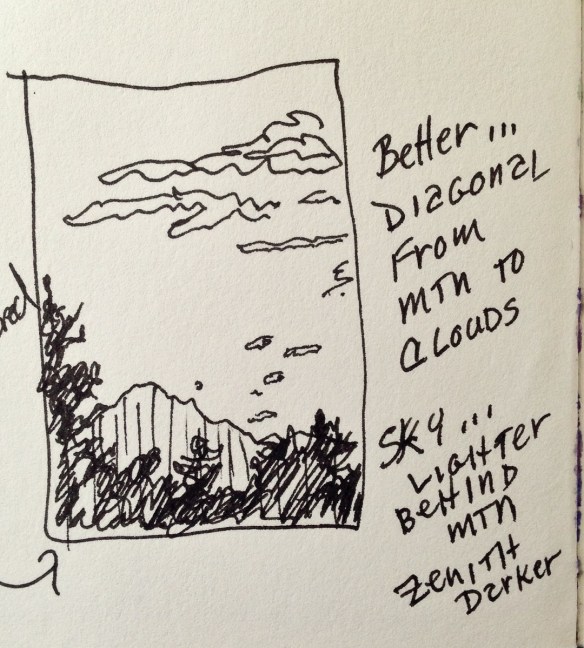 Better...
Diagonal
From
mtn to
clouds
Sky...
Lighter
Behind
mtn
Zenith
Darker